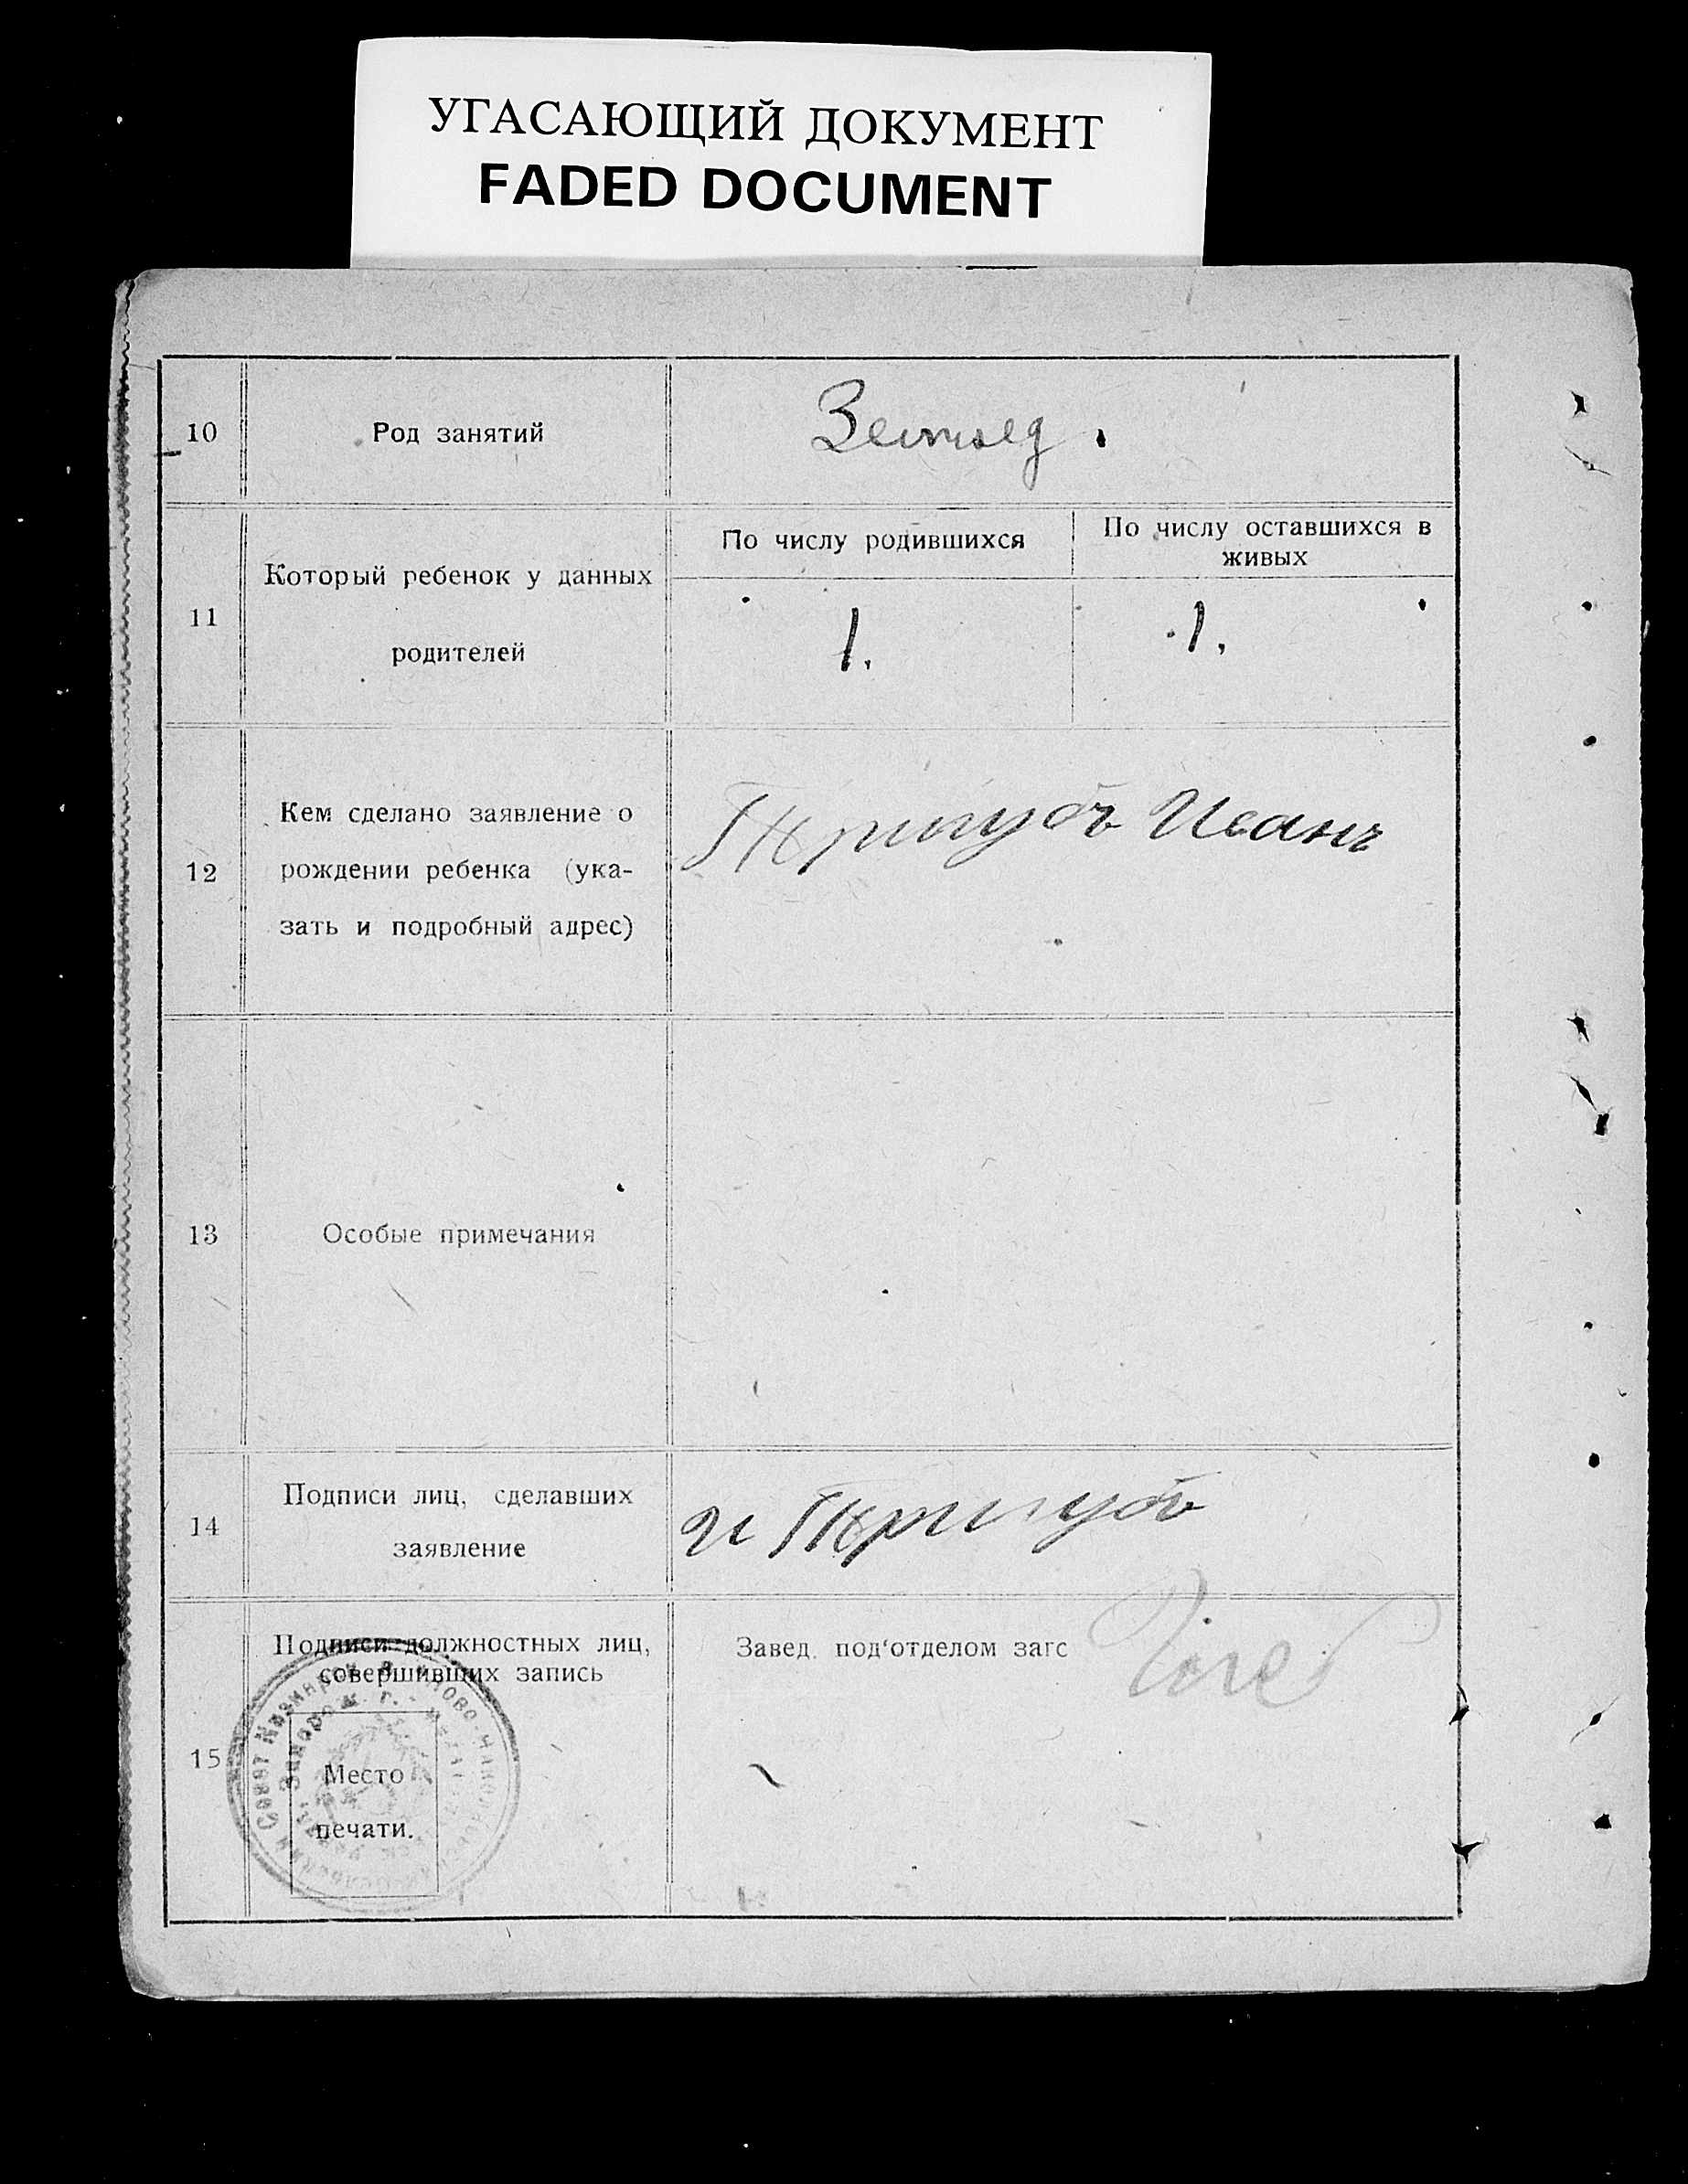 УГАСАЮЩИЙ ДОКУМЕНТ
FADED DOCUMENT
10 Род занятий Землед.
По числу родившихся По числу оставшихся в
живых
11 Который ребенок у данных
родителей
1. 1.
12 Кем сделано заявление о
рождении ребенка (ука-
зать и подробный адрес)
Тригубъ Иванъ
13 Особые примечания
14 Подписи лиц, сделавших
заявление
И Тригубъ
15 Подписи должностных лиц,
совершивших запись
Завед. под‘отделом загс
Место
печати.